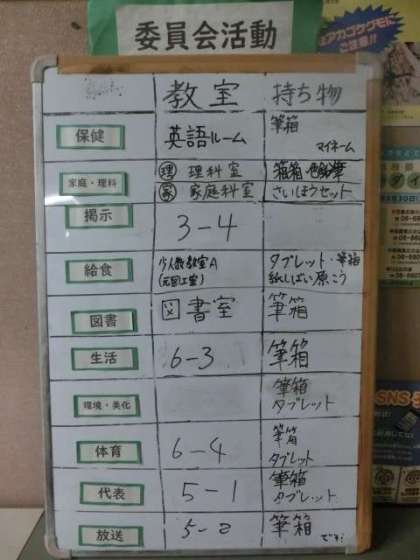 委員会活動
アカゴケグモに
ご注意!!
教室 持ち物
保健 英語ルーム 筆箱
マイネーム
家庭・理科 理 理科室
家 家庭科室 さいほうセット
掲示 3-4
給食 少人数教室A タブレット・筆箱
(元図工室) 紙しばい原こう
図書 図書室 筆箱
生活 6-3 筆箱
環境・美化 筆箱
タブレット
体育 6-4 筆箱
タブレット
代表 5-1 筆箱
タブレット
放送 5-2 筆箱
SNS